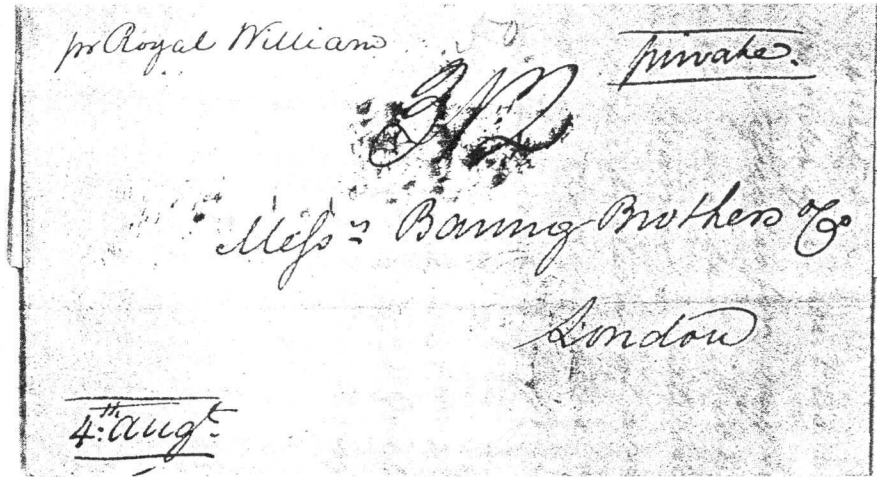 pr Royal William
private.
3/2
Messrs Baring Brothers & Co
London
4th augt